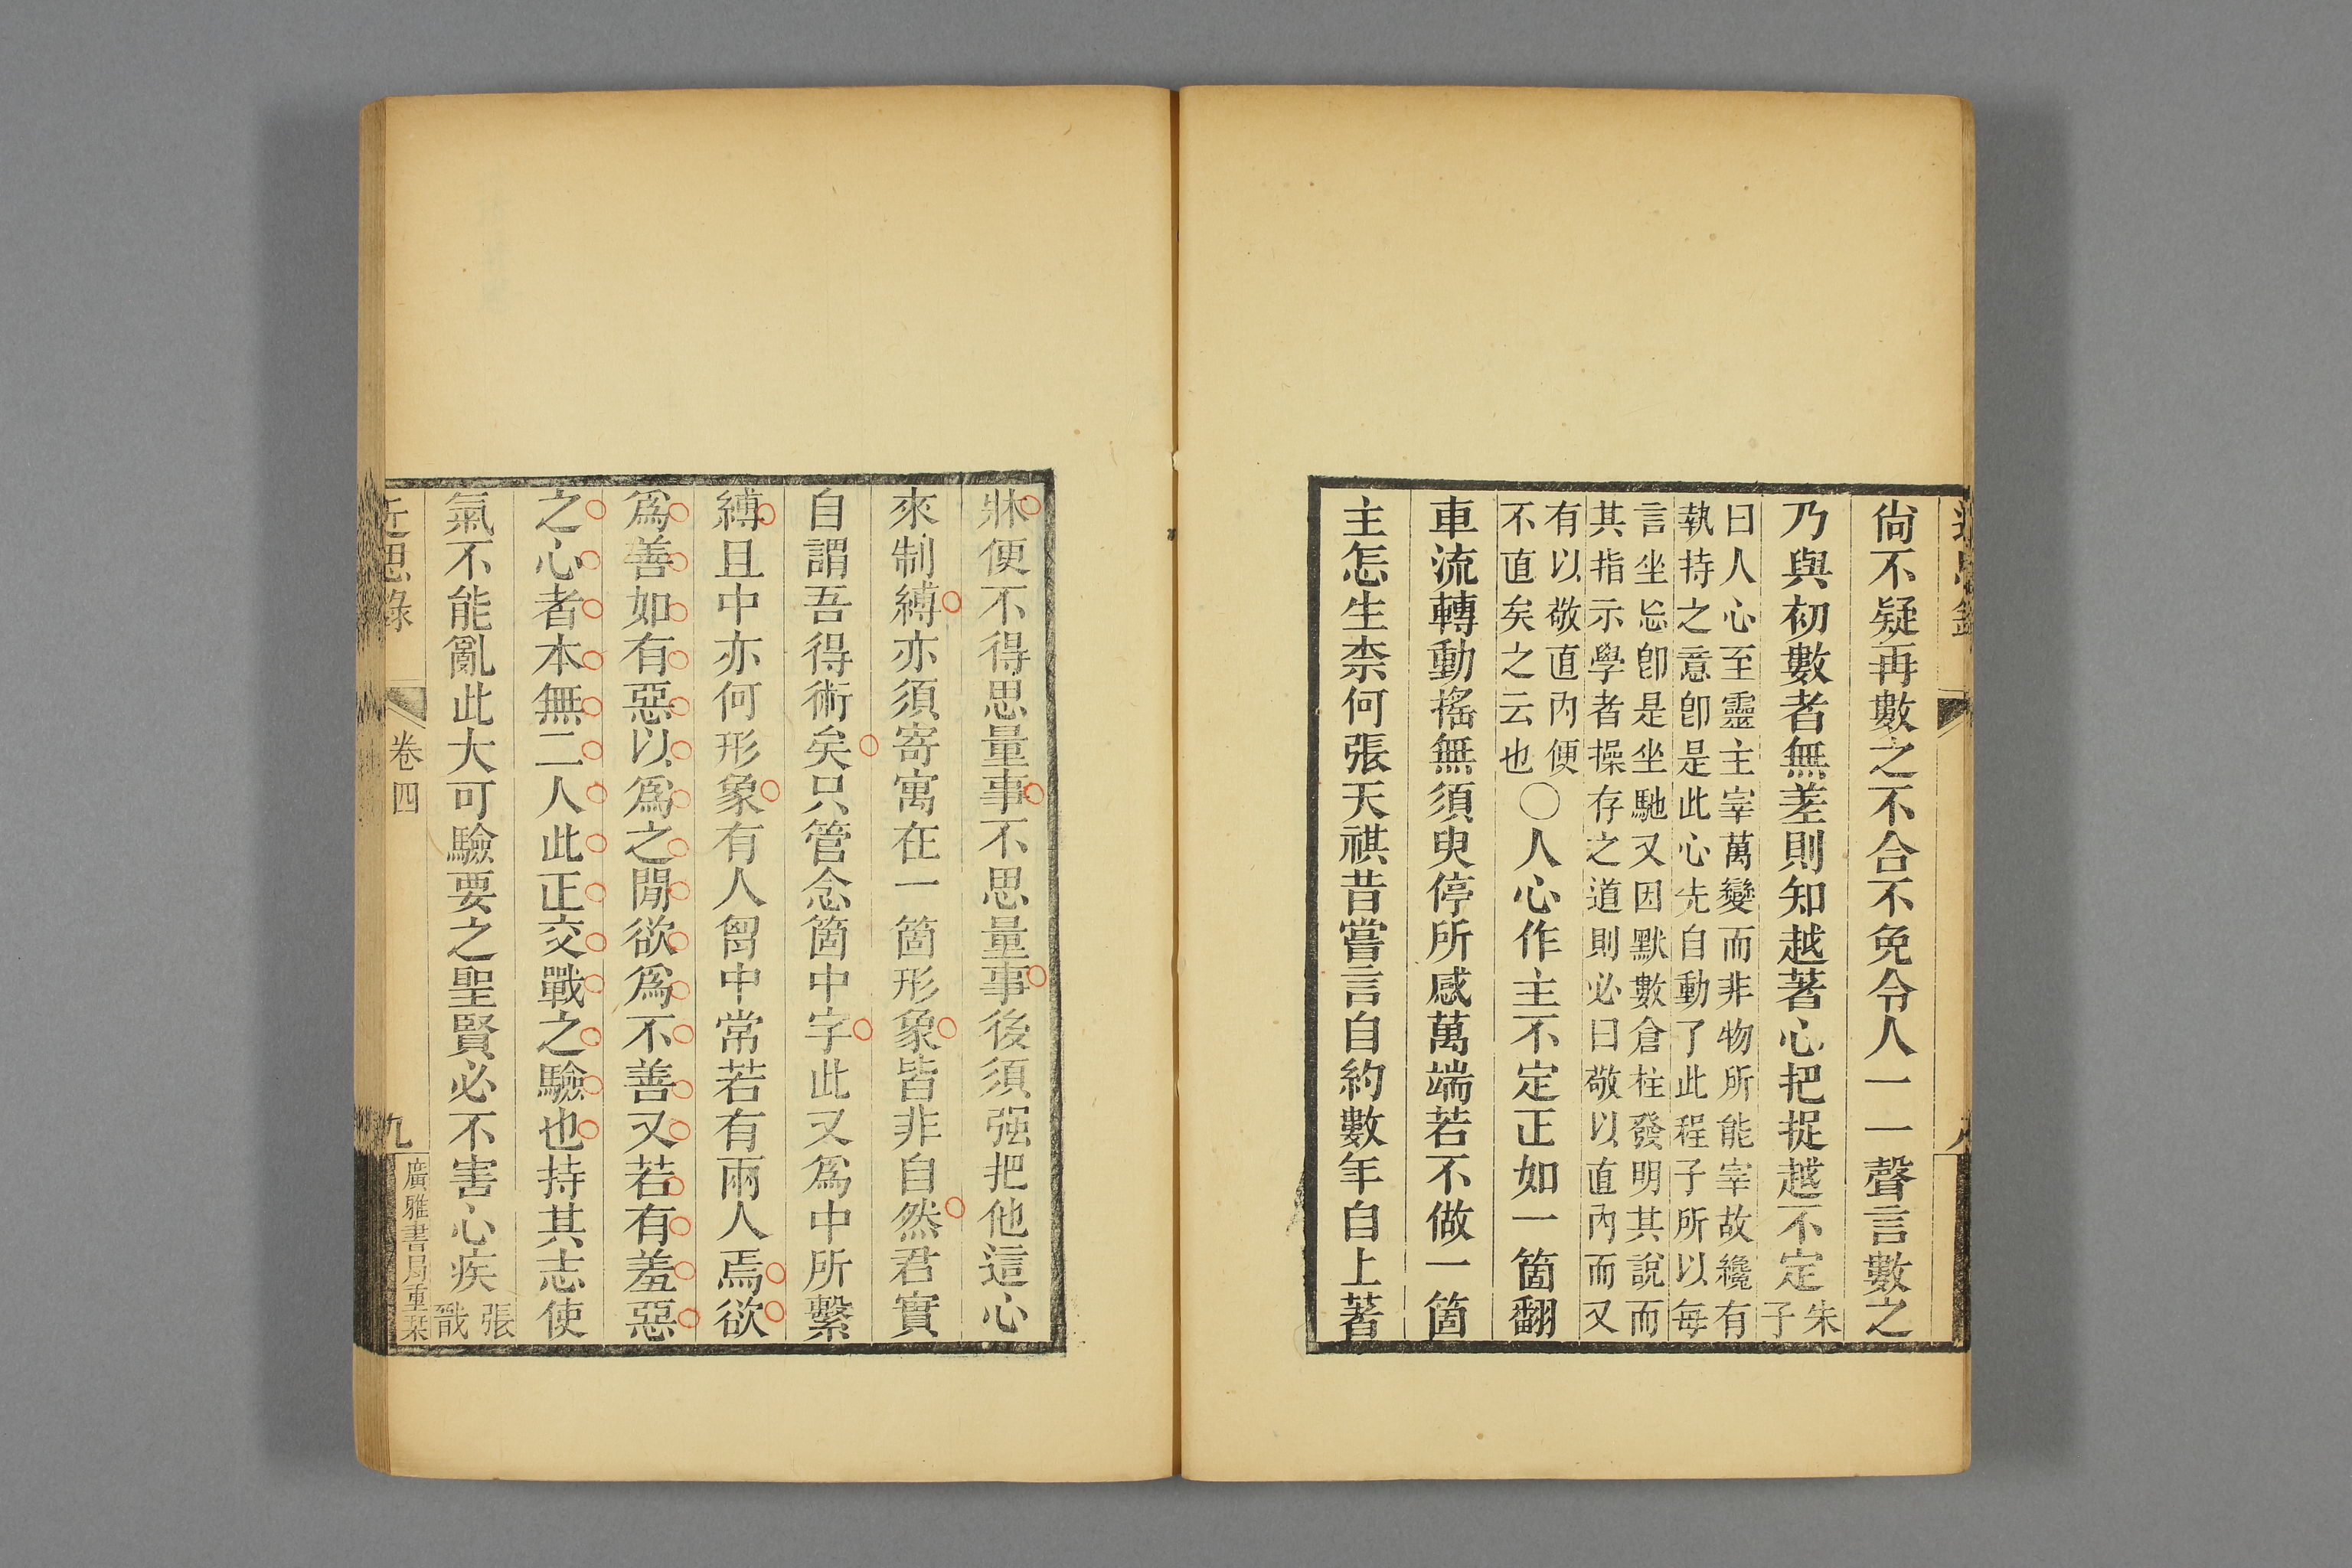 近思錄
尙不疑再數之不合不免令人一一聲言數之
乃與初數者無差則知越著心把捉越不定朱子
曰人心至靈主宰萬變而非物所能宰故纔有
執持之意卽是此心先自動了此程子所以每
言坐忘卽是坐馳又因默數倉柱發明其說而
其指示學者操存之道則必曰敬以直內而又
有以敬直內便
不直矣之云也
○人心作主不定正如一箇翻
車流轉動搖無須臾停所感萬端若不做一箇
主怎生柰何張天祺昔嘗言自約數年自上著
牀便不得思量事不思量事後須强把他這心
來制縛亦須寄寓在一箇形象皆非自然君實
自謂吾得術矣只管念箇中字此又爲中所繫
縛且中亦何形象有人胷中常若有兩人焉欲
爲善如有惡以爲之閒欲爲不善又若有羞惡
之心者本無二人此正交戰之驗也持其志使
氣不能亂此大可驗要之聖賢必不害心疾張戩
近思錄 卷四 九 廣雅書局重栞